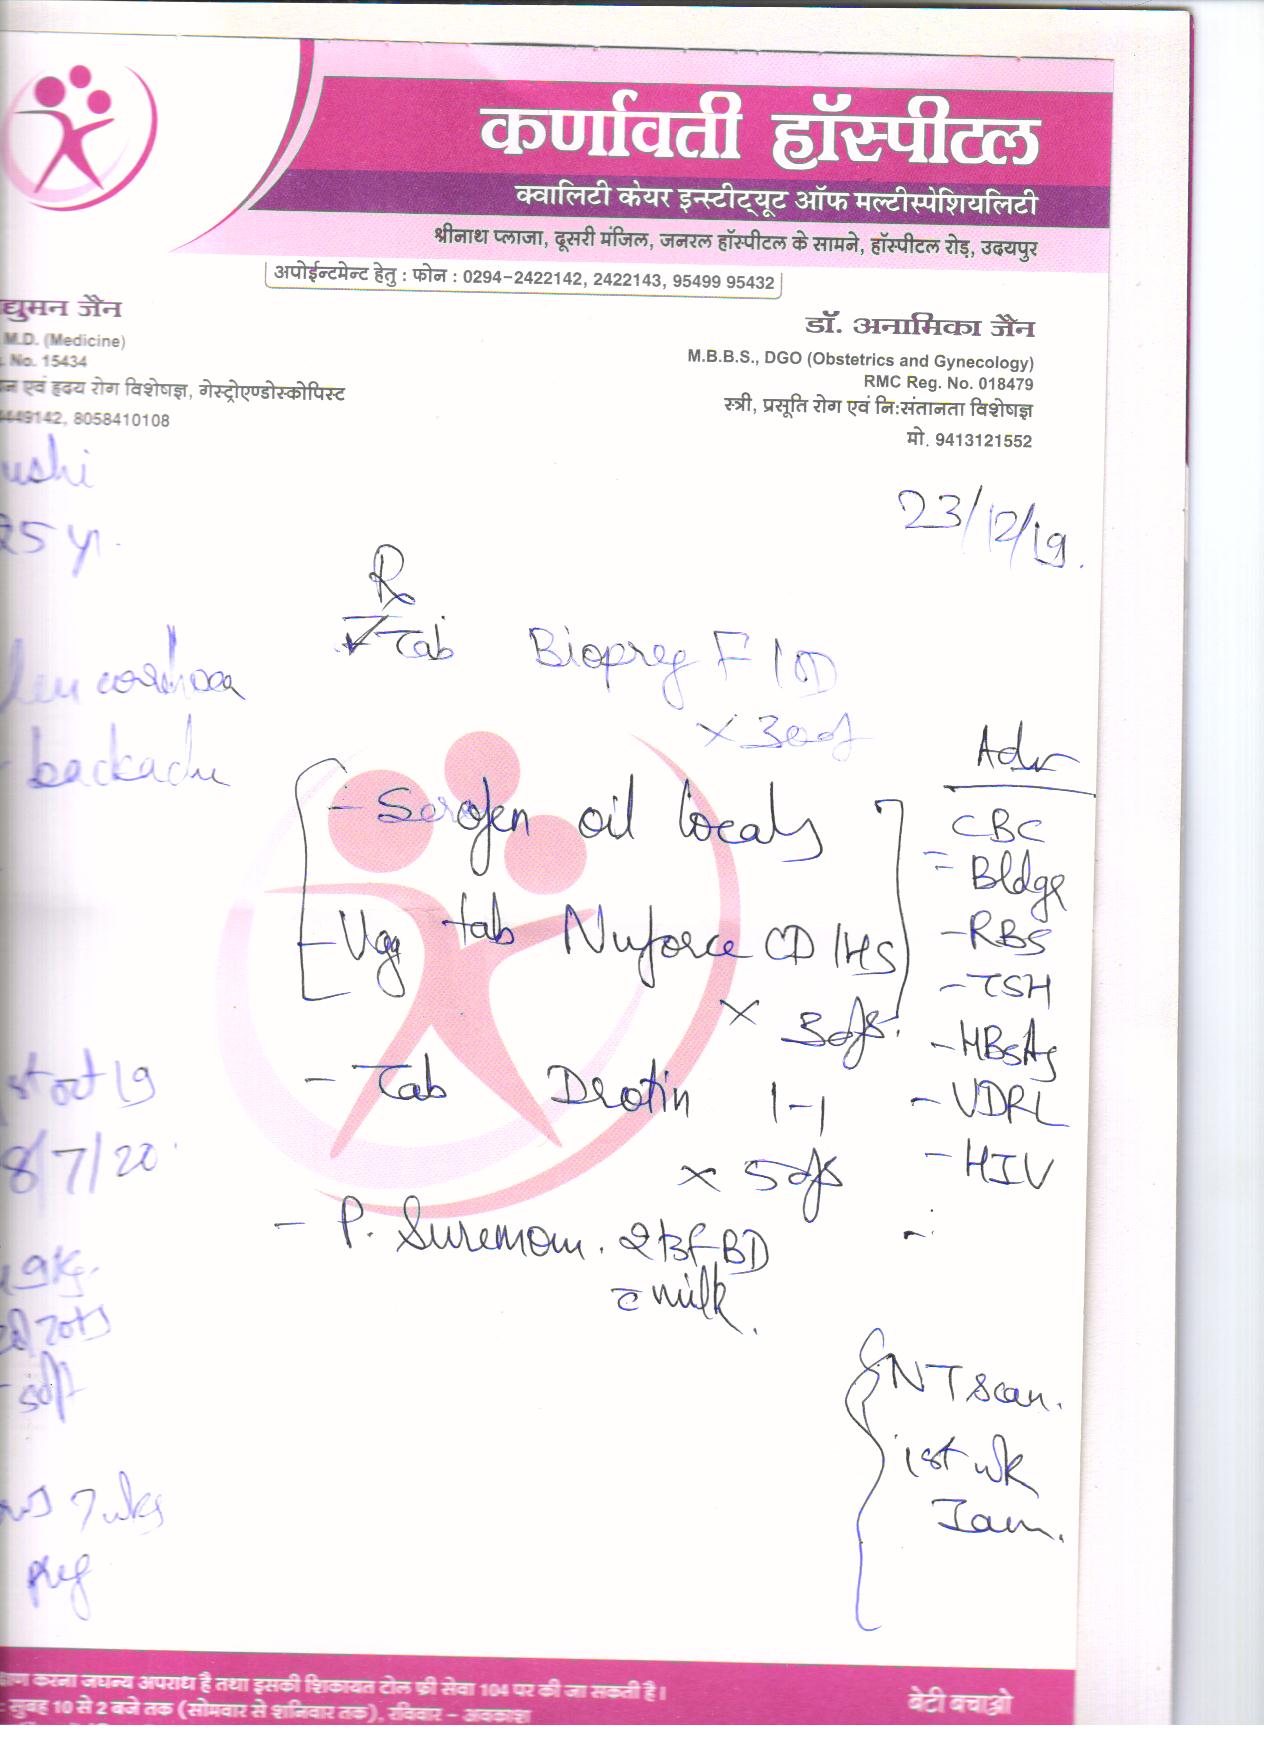 कर्णावती हॉस्पीटल
क्वालिटी केयर इन्स्टीट्यूट ऑफ मल्टीस्पेशियलिटी
श्रीनाथ प्लाजा, दूसरी मंजिल, जनरल हॉस्पीटल के सामने, हॉस्पीटल रोड़, उदयपुर
अपोईन्टमेन्ट हेतु : फोन : 0294-2422142, 2422143, 95499 95432
द्युमन जैन
M.D. (Medicine)
. No. 15434
एवं हृदय रोग विशेषज्ञ, गेस्ट्रोएण्डोस्कोपिस्ट
449142, 8058410108
डॉ. अनामिका जैन
M.B.B.S., DGO (Obstetrics and Gynecology)
RMC Reg. No. 018479
स्त्री, प्रसूति रोग एवं नि:संतानता विशेषज्ञ
मो. 9413121552
ushi
25 yr.
23/12/19.
Rx
Tab Biopreg F 1 OD
x 30 d
leucorrhoea
backache
- Serofen oil locally
- Vag tab Nuforce CD 1 HS
x 3 ds.
- Tab Drotin 1-1
x 5 ds
- P. Suremom. 2 tsf BD
c milk.
Adv
CBC
= Bldgr
- RBS
- TSH
- HBsAg
- VDRL
- HIV
st oct 19
8/7/20
9 Kg.
soft
7 wks
preg
NT scan.
1st wk
Jan.
करना जघन्य अपराध है तथा इसकी शिकायत टोल फ्री सेवा 104 पर की जा सकती है।
: सुबह 10 से 2 बजे तक (सोमवार से शनिवार तक), रविवार - अवकाश
बेटी बचाओ